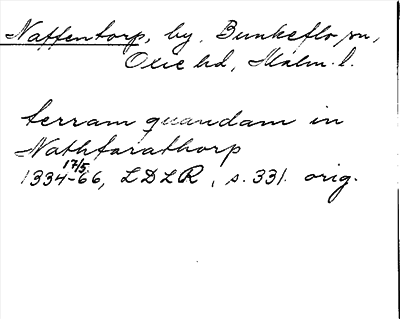 Naffentorp, by, Bunkeflo sn,
Oxie hd, Malm. l.
terram quandam in
Nathfarathorp
17/5
1334-66, LDLR, s. 331. orig.